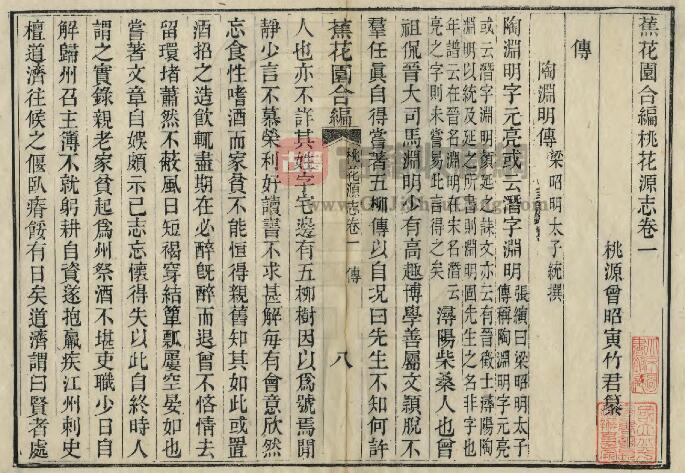 蕉花園合編桃花源志卷一
桃源曾昭寅竹君纂
傳
陶淵明傳
梁昭明太子統撰
陶淵明字元亮或云潛字淵明
張縯曰梁昭明太子
傳稱陶淵明字元亮
或云潛字淵明顏延之誄文亦云有晉徵士潯陽陶
淵明以統及延之所書則淵明固先生之名非字也
年譜云在晉名淵明在宋名潛云
亮之字則未嘗易此言得之矣
潯陽柴桑人也曾
祖侃晉大司馬淵明少有高趣博學善屬文穎脫不
羣任真自得嘗著五柳傳以自況曰先生不知何許
蕉花園合編
桃花源志卷一 傳
八
人也亦不詳其姓字宅邊有五柳樹因以爲號焉閒
靜少言不慕榮利好讀書不求甚解每有會意欣然
忘食性嗜酒而家貧不能恒得親舊知其如此或置
酒招之造飲輒盡期在必醉旣醉而退曾不恡情去
留環堵蕭然不蔽風日短褐穿結簞瓢屢空晏如也
嘗著文章自娛頗示己志忘懷得失以此自終時人
謂之實錄親老家貧起爲州祭酒不堪吏職少日自
解歸州召主簿不就躬耕自資遂抱羸疾江州刺史
檀道濟往候之偃臥瘠餒有日矣道濟謂曰賢者處